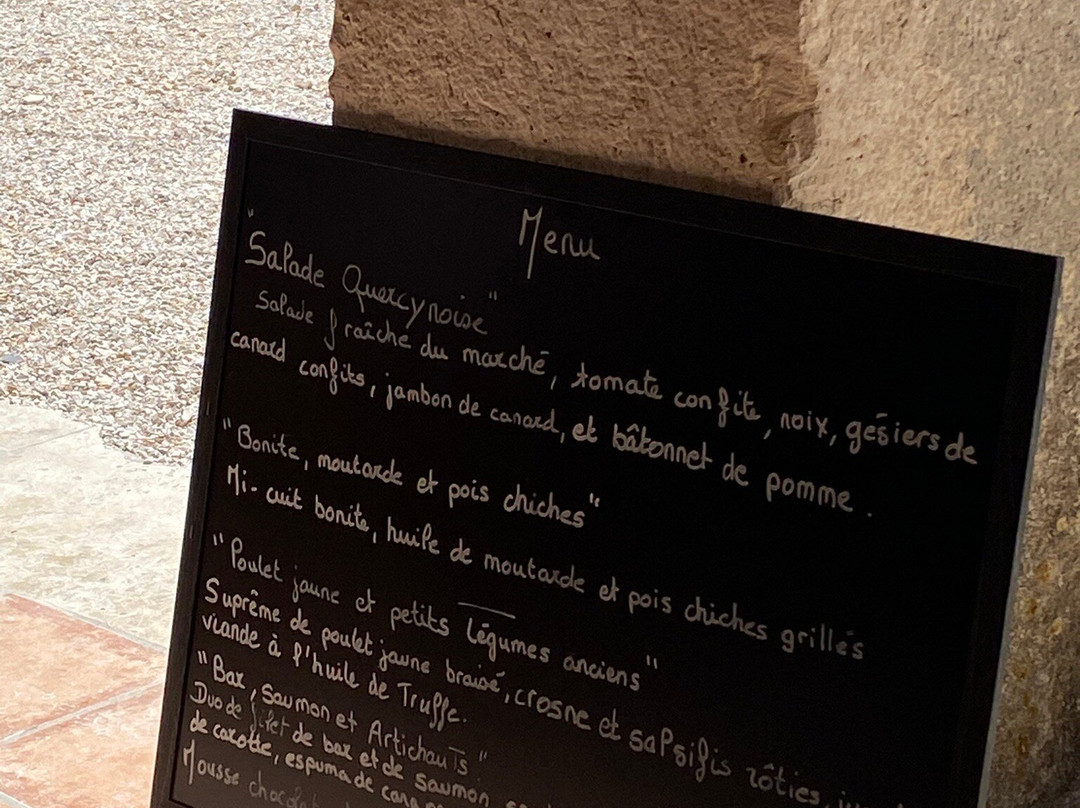 Menu
"Salade Quercynoise"
Salade fraîche du marché, tomate confite, noix, gésiers de
canard confits, jambon de canard, et bâtonnet de pomme.
"Bonite, moutarde et pois chiches"
Mi-cuit bonite, huile de moutarde et pois chiches grillés
"Poulet jaune et petits légumes anciens"
Suprême de poulet jaune braisé, crosne et salsifis rôties,
viande à l'huile de Truffe.
"Bar, Saumon et Artichauts"
Duo de filet de bar et de saumon
de carotte, espuma de
Mousse